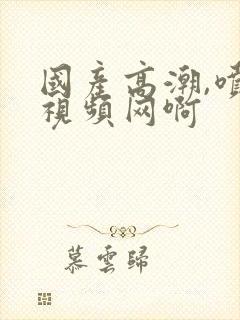 國產高潮,噴
視頻网啊
慕雲歸